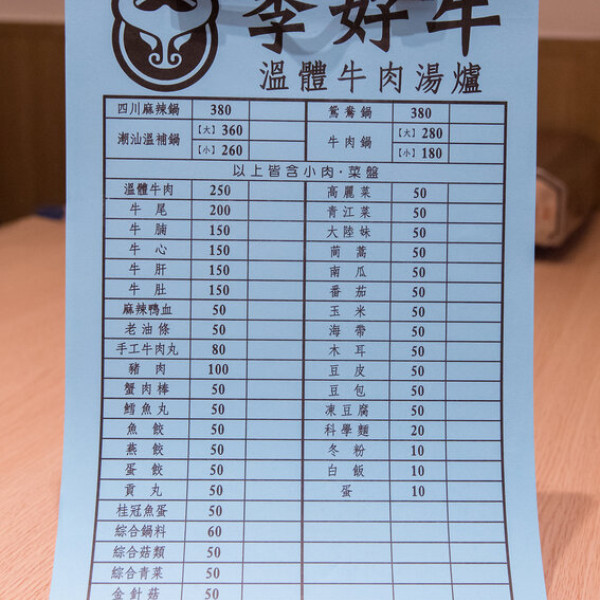 李好牛
溫體牛肉湯爐
四川麻辣鍋 380 鴛鴦鍋 380
潮汕溫補鍋 【大】360 牛肉鍋 【大】280
【小】260 【小】180
以上皆含小肉·菜盤
溫體牛肉 250 高麗菜 50
牛尾 200 青江菜 50
牛腩 150 大陸妹 50
牛心 150 茼蒿 50
牛肝 150 南瓜 50
牛肚 150 番茄 50
麻辣鴨血 50 玉米 50
老油條 50 海帶 50
手工牛肉丸 80 木耳 50
豬肉 100 豆皮 50
蟹肉棒 50 豆包 50
鱈魚丸 50 凍豆腐 50
魚餃 50 科學麵 20
燕餃 50 冬粉 10
蛋餃 50 白飯 10
貢丸 50 蛋 10
桂冠魚蛋 50
綜合鍋料 60
綜合菇類 50
綜合青菜 50
金針菇 50